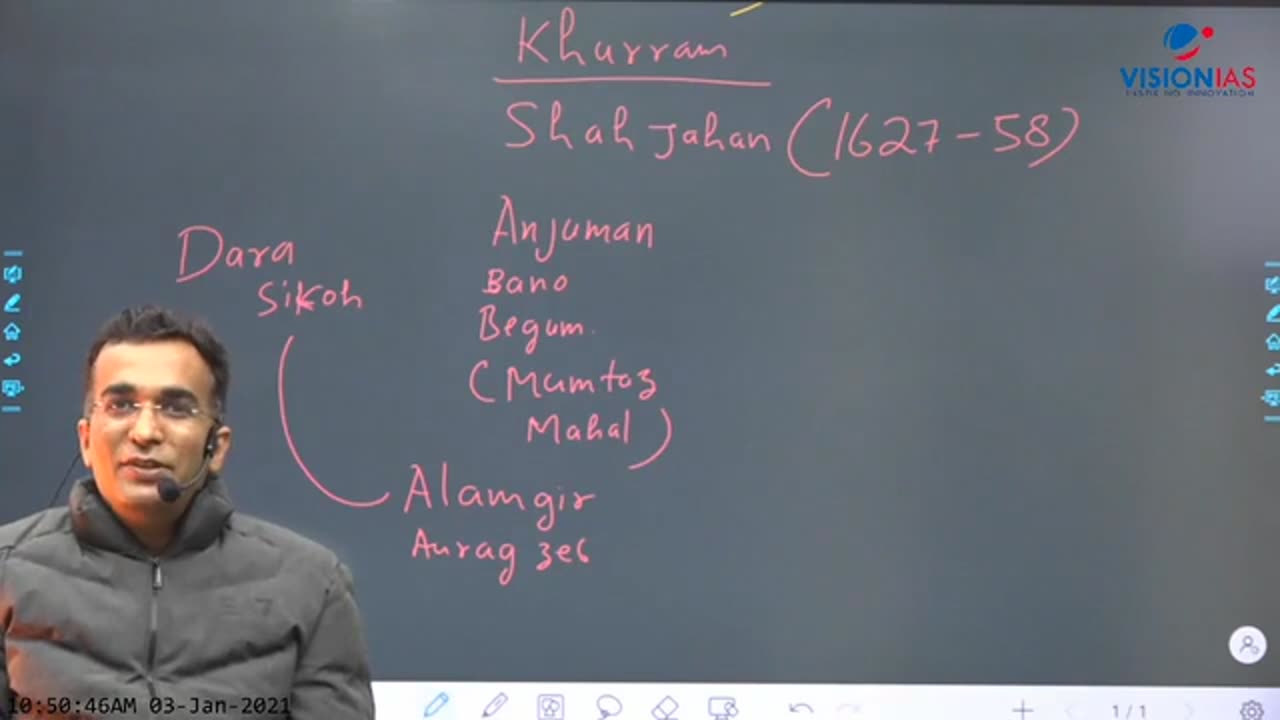 Khurram
VISIONIAS
INSPIRING INNOVATION
Shah Jahan (1627-58)
Anjuman
Bano
Begum.
(Mumtaz
Mahal)
Dara
Sikoh
Alamgir
Aurag zeb
10:50:46AM 03-Jan-2021
1/1